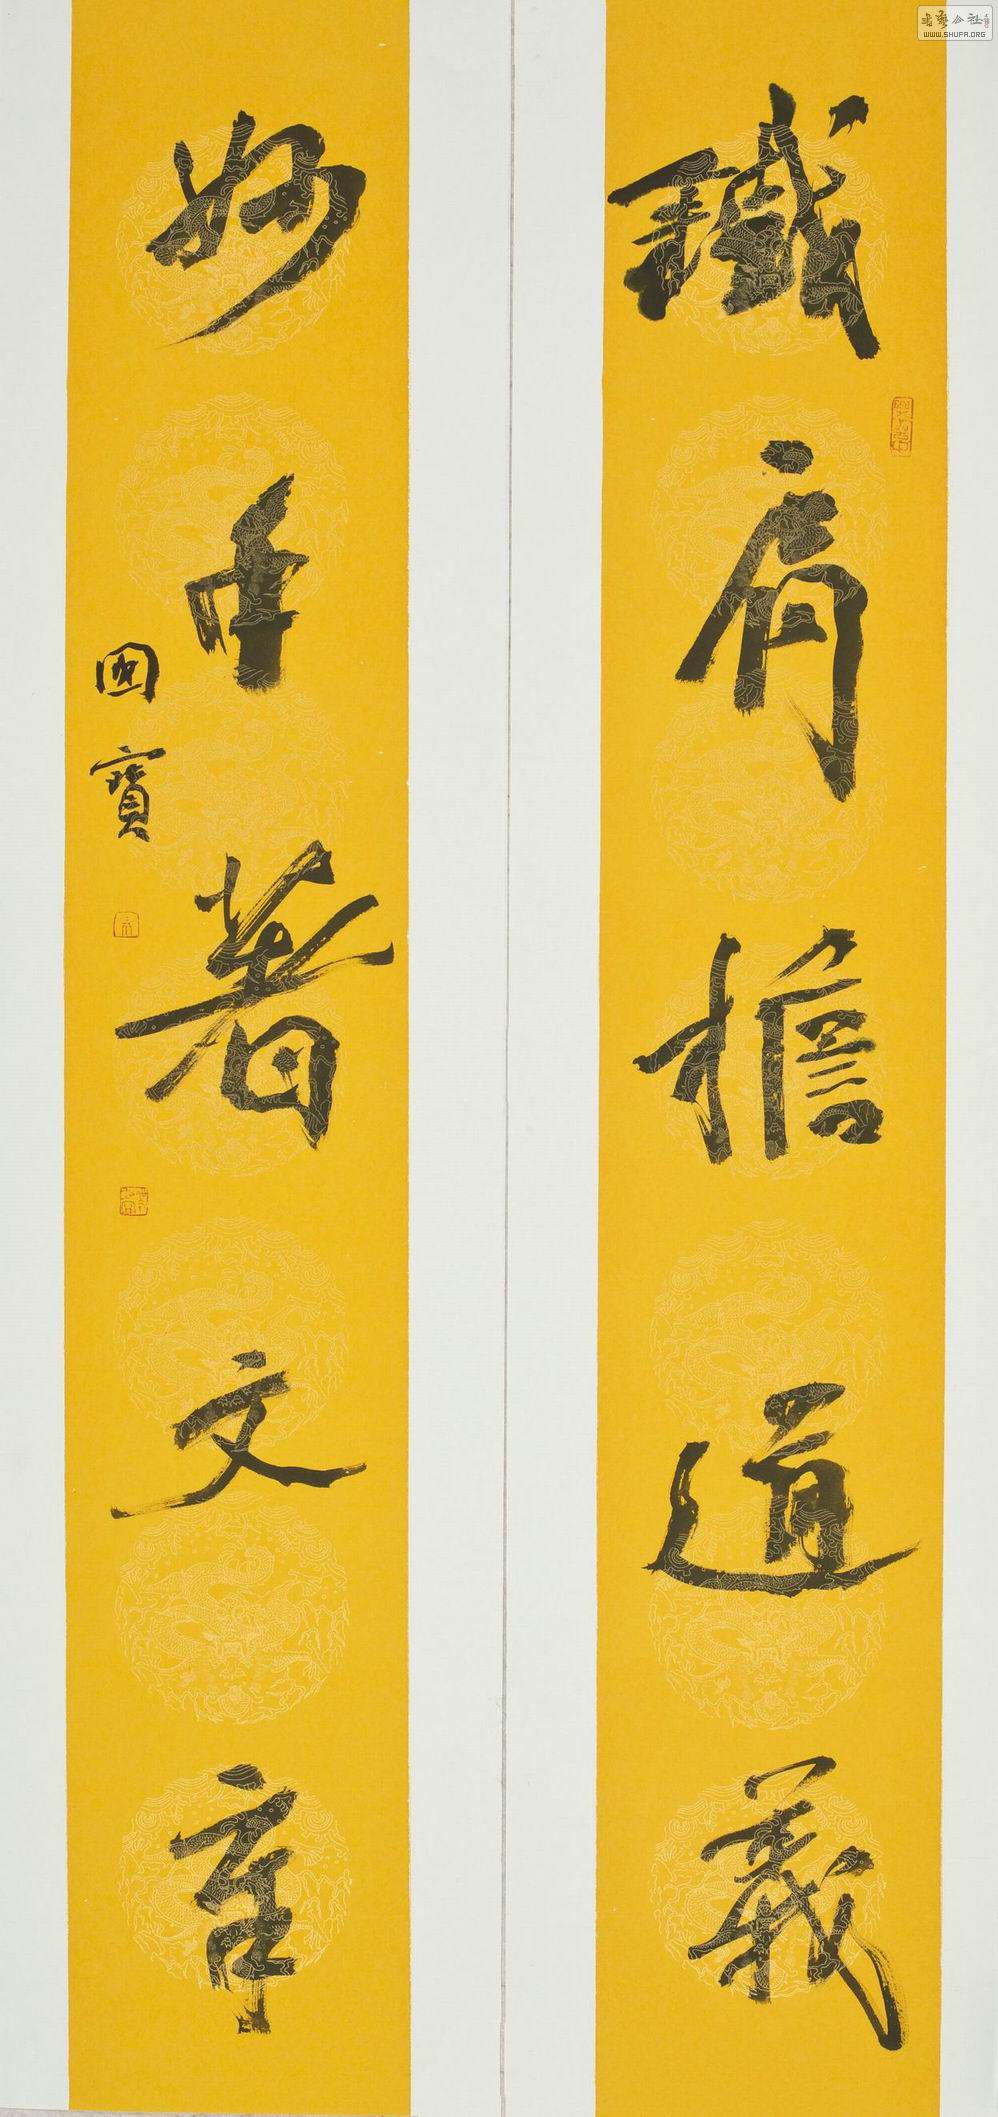 鐵肩擔道義
妙手著文章
國寶
書藝公社
WWW.SHUFA.ORG